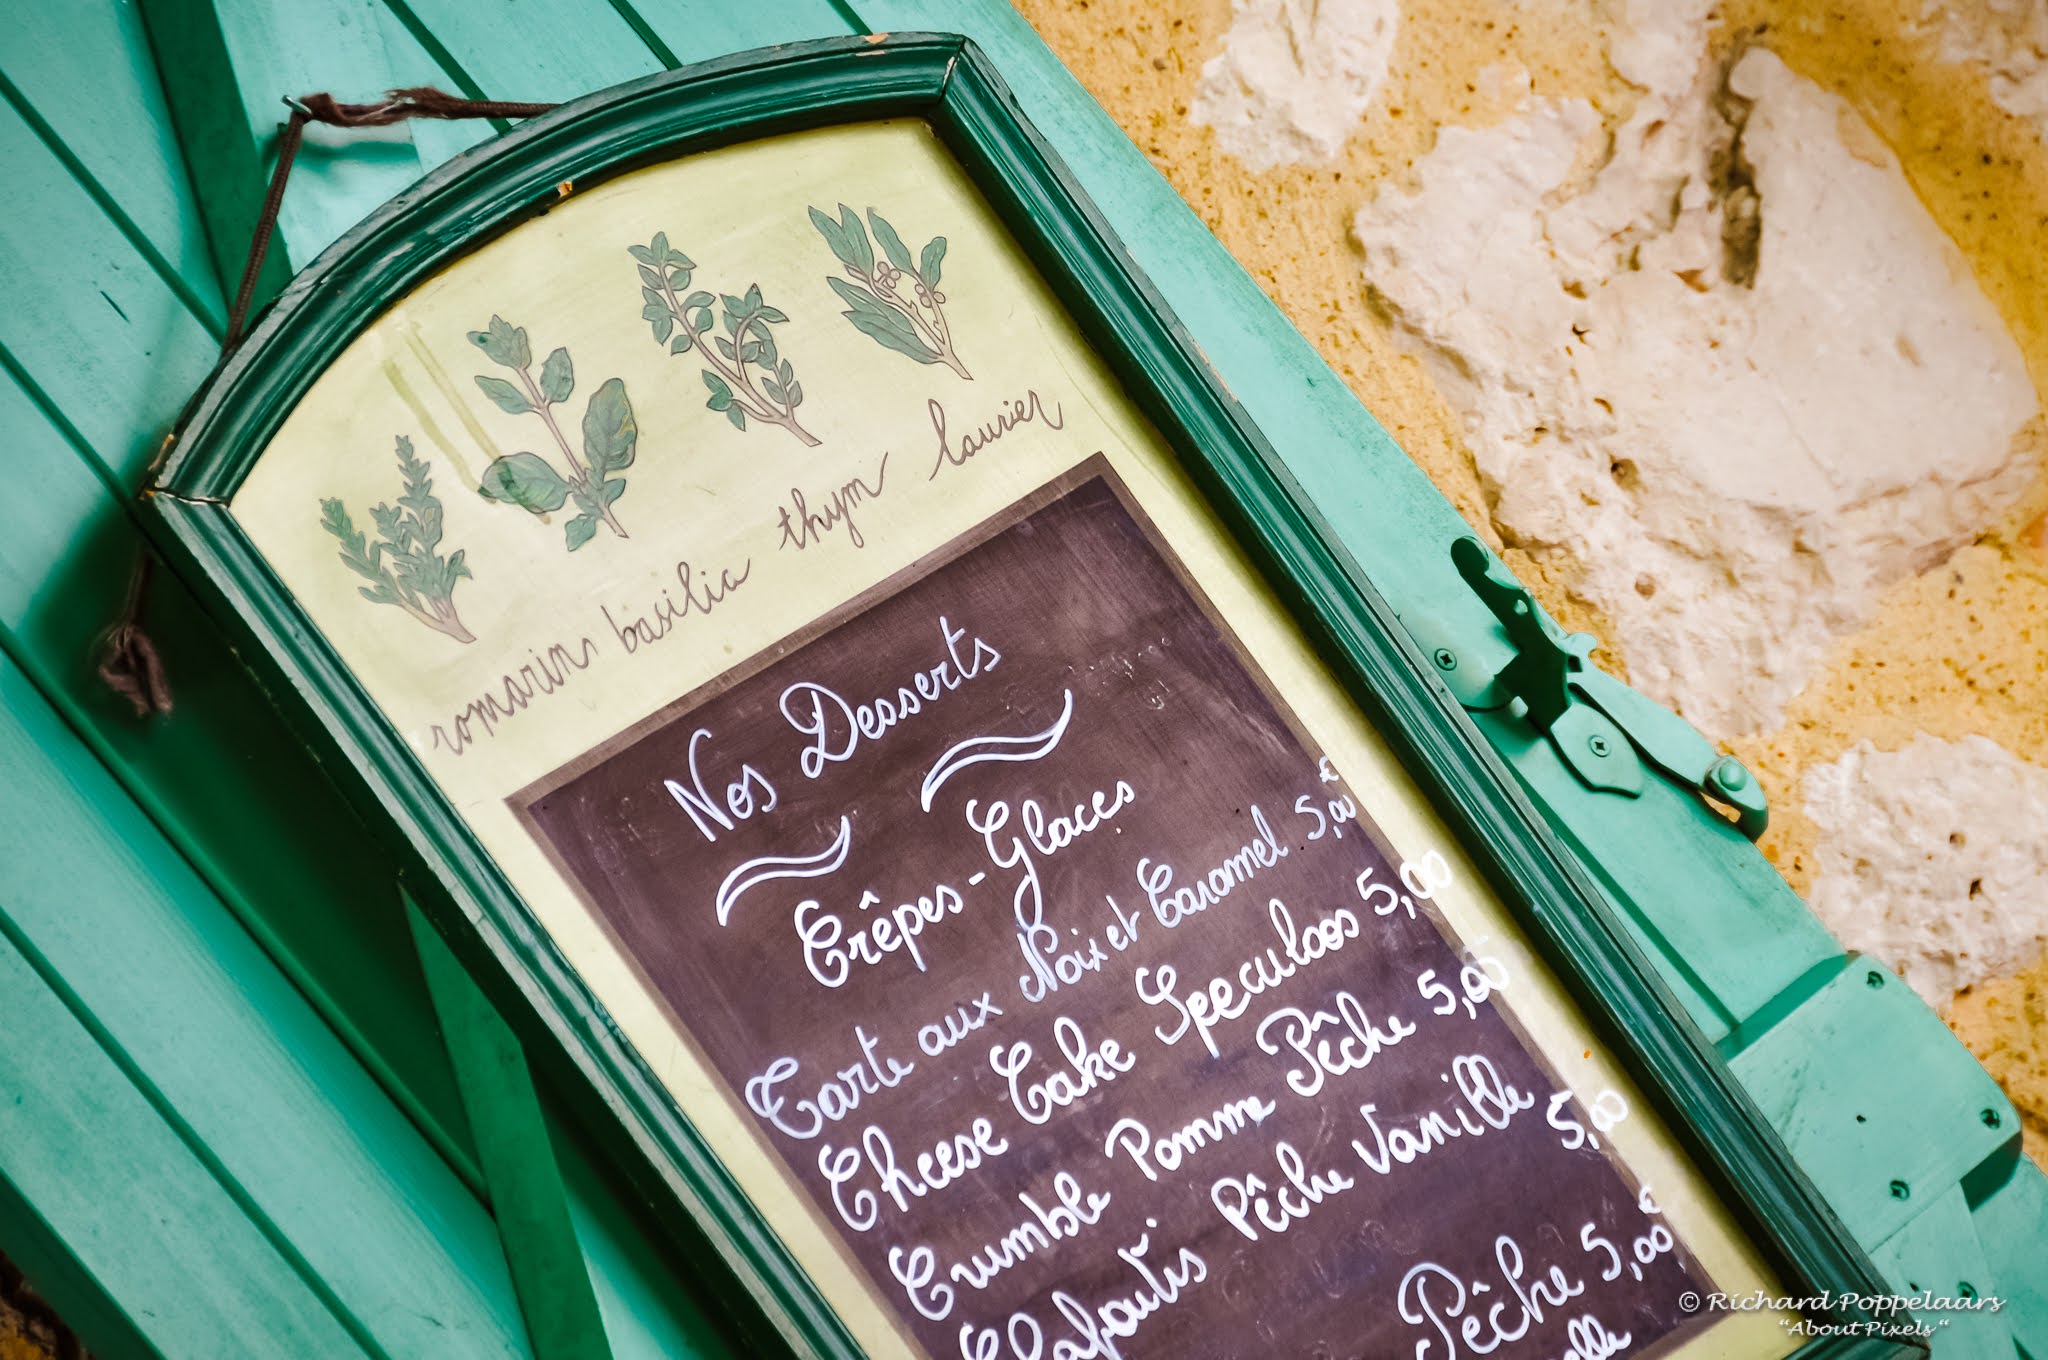 romarin basilic thym laurier
Nos Desserts
Crêpes - Glaces
Tarte aux Noix et Caramel 5,00 €
Cheese Cake Speculoos 5,00
Crumble Pomme Pêche 5,00
Clafoutis Pêche Vanille 5,00
Pêche 5,00 €
© Richard Poppelaars
"About Pixels"